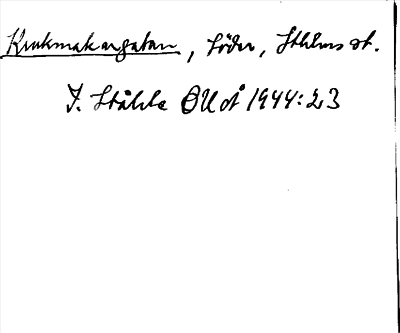 Krukmakargatan, Söder, Sthlms st.
I. Ståhle ÖUoÅ 1944:23